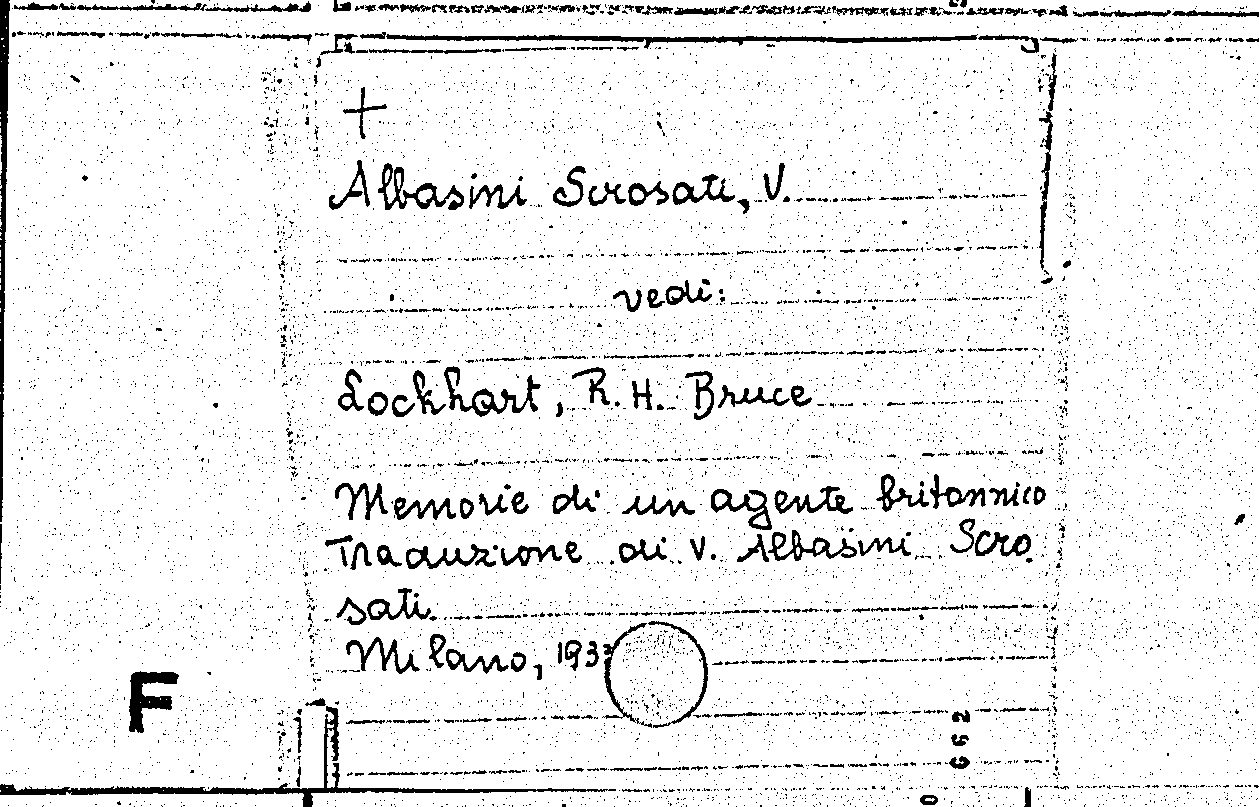 Albasini Scrosati, V.
vedi:
Lockhart, R. H. Bruce
Memorie di un agente britannico
Traduzione di V. Albasini Scro
sati.
Milano,
F
662